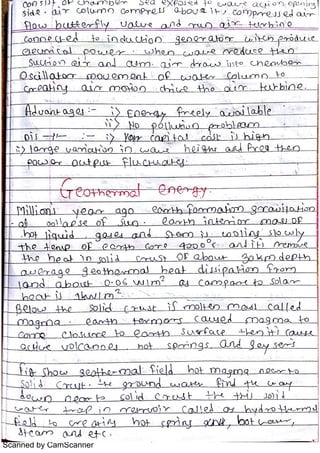 consist of chamber sea exposed to wave action opening
side. air column compress above it, compressed air
flow butterfly valve and run air turbine
connected to induction generator witch produce
electrical power. when wave reduce then
suction air and atm. air draw into chember
Oscillator movement of water column to
creating air motion drive the air turbine.
Advantages:- i) Energy freely available
ii) No pollution probloam
Dis -11- :- i) capital cost is high
2) large variation in wave heighs and freq then
power output fluctuates.
Geothermal energy.
Millions year ago earth formation gravitation
of collapse of sun. earth interior mass of
hot liquid gases and steam is cooling slowly
the temp of earth core 4000°c and it remove
the heat in solid crust of about 30km depth
average geothermal heat dissipation from
land about 0.06 W/m² as compare to solar
heat is 1kw/m²
Below the solid crust is molten mass called
magma. earth termors caused magma to
come closure to earth surface then it cause
active volcanoes hot springs and geysers
fig show geothermal field hot magma near to
solid crust. the ground water find the way
down near to solid crust the this solid
water trap in reservoir called as hydrothermal
field to creating hot spring, hot water,
steam and etc.
Scanned by CamScanner